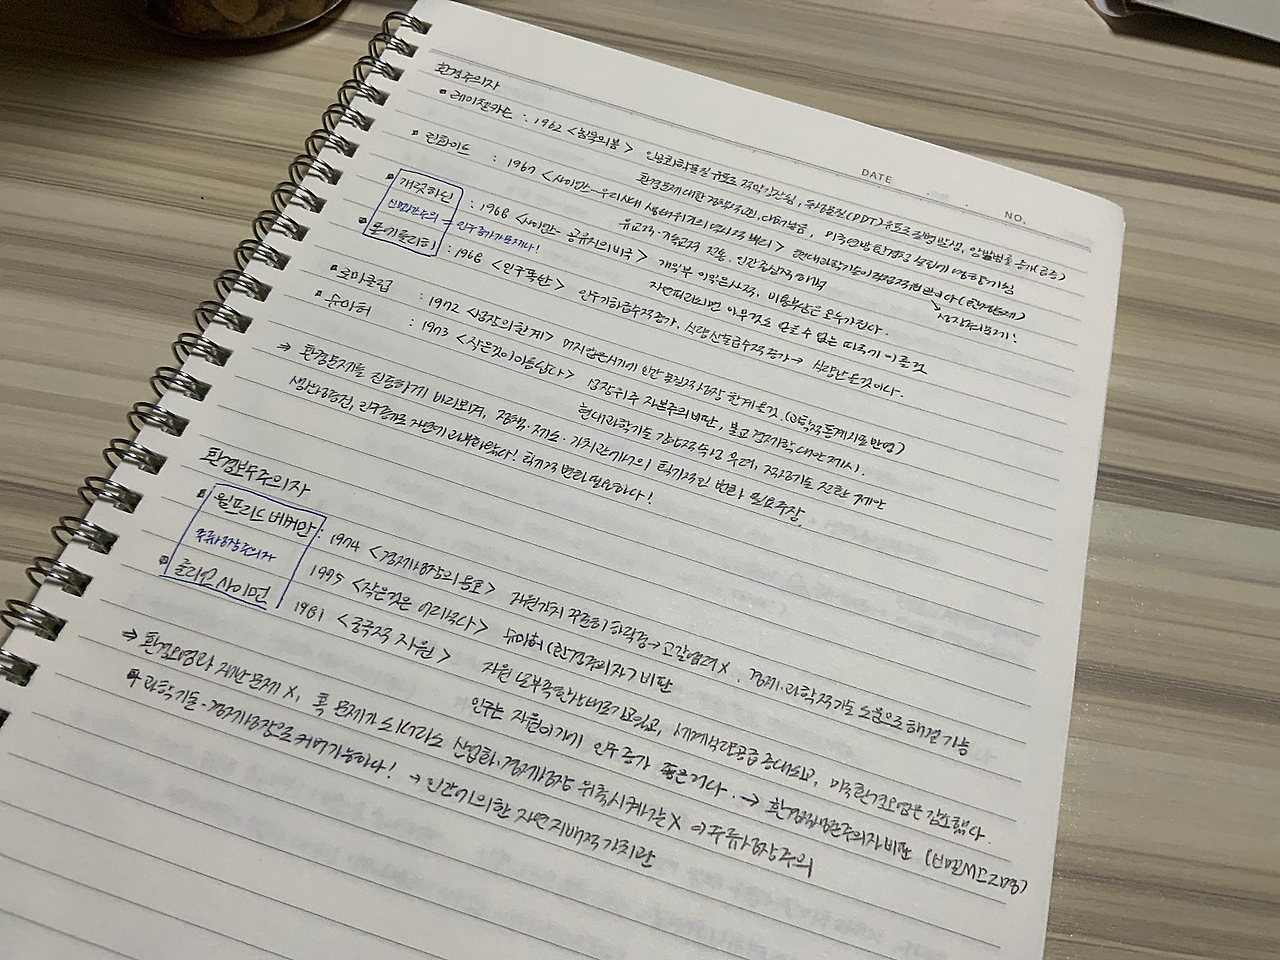 DATE
NO.
환경주의자
• 레이첼카슨 : 1962 <침묵의봄> 인공화학물질 유포로 생략, 독성물질(DDT)유포로 질병발생, 암발병률 증가(급증)
환경문제 대한 대중 , 미국연방환경청 설립에 영향끼침
• 린화이트 : 1967 <사이언스-우리시대 생태위기의 역사적 뿌리> 현대과학기술이 직접적 원인이다 (환경문제)
유교적·기독교적 전통. 인간중심적 해석
성장동력주의!
• 개럿하딘 : 1968 <사이언스- 공유지의 비극> 개인부 이익은 사적, 비용부담은 모두가진다.
신맬서스주의 = 인구증가가 문제다!
자연 따라되면 아무것도 얻을 수 없는 파국에 이를것
• 폴에를리히 : 1968 <인구폭탄> 인구기하급수적증가, 식량산술급수적증가 → 식량난 온것이다.
• 로마클럽 : 1972 <성장의한계> 머지않은시기에 인간 물질적성장 한계올것. (과학적통계자료 반영)
• 슈마허 : 1973 <작은것이아름답다> 성장위주 자본주의비판, 불교 경제학 대안제시.
현대과학기술 우려, 중간기술 전환 제안
⇒ 환경문제를 진중하게 바라보며, 정책·제도·가치관에서의 획기적인 변화 필요주장.
생산성조건, 인구증가로 자연이 변화했다! 획기적 변화 필요하다!
환경보수주의자
• 윌프리드 베커만 : 1974 <경제성장의 옹호> 자원가치 꾸준히 하락중→고갈염려 X. 경제·과학적기술 도움으로 해결 가능
주류성장론자
1975 <작은것은 어리석다> 슈마허(환경주의자) 비판
• 줄리언 사이먼 1981 <궁극적 자원> 자원 난 부족한상태로가고있고, 세계식량공급 증대되고, 미국환경오염은 감소했다.
인구는 자원이기에 인구 증가 좋은거다. → 환경적낙관주의자 비판 (비욘M드로그)
⇒ 환경오염과 재난문제 X, 혹 문제가 되더라도 산업화·경제성장 위축시켜서는 X ⇒ 주류성장주의
과학기술·경제성장으로 커버가능하다! → 인간에의한 자연 지배적 가치관